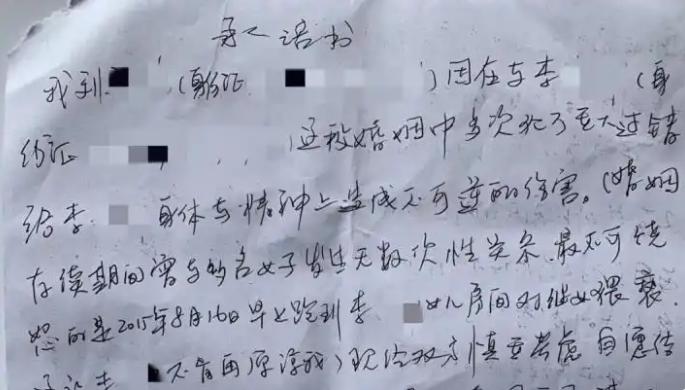 承诺书
我刘 （身份证 ）因在与李 （身
份证 这段婚姻中多次犯了重大过错
给李 身体与精神上造成不可逆的伤害。（婚姻
存续期间曾与多名女子发生无数次性关系，最不可饶
恕的是2015年8月16日早上跑到李 女儿房间对继女猥亵.
李 不肯再原谅我）现经双方慎重考虑 自愿